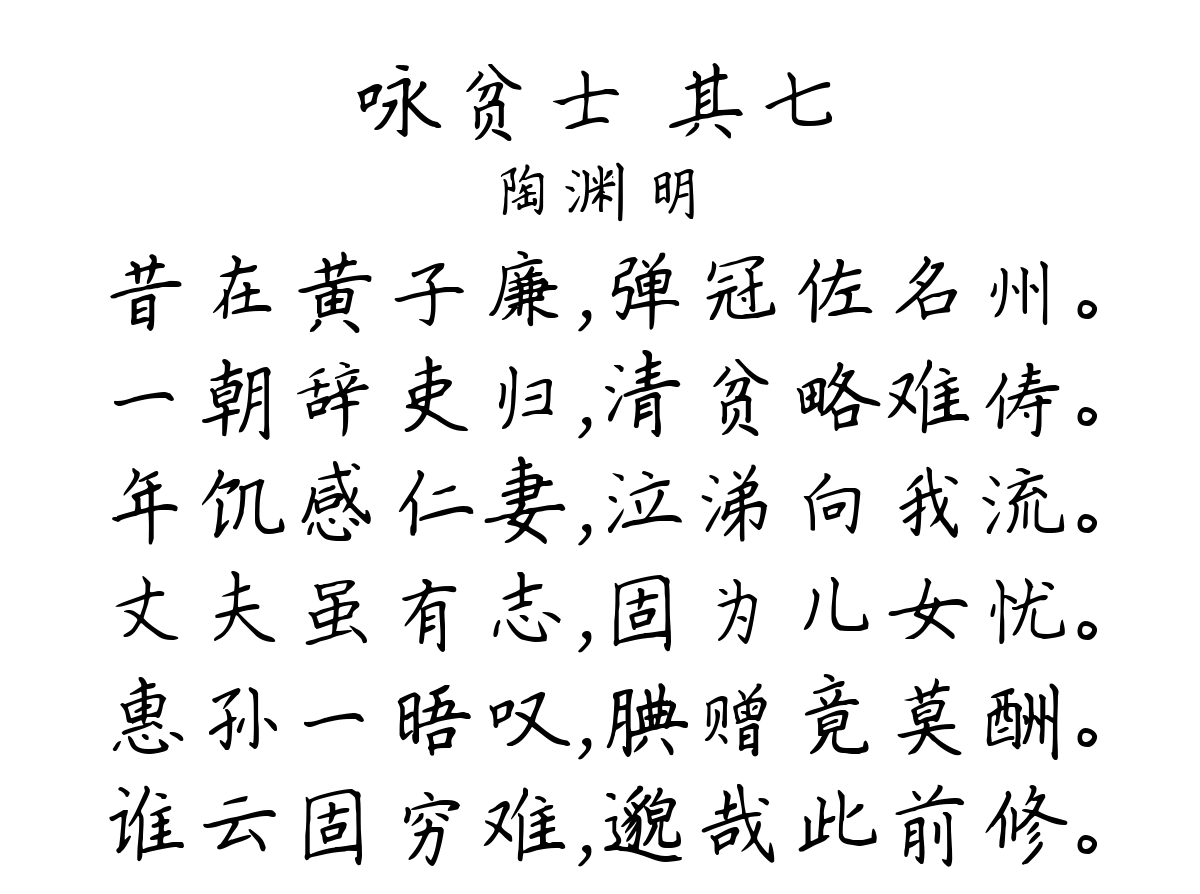 咏贫士 其七
陶渊明
昔在黄子廉,弹冠佐名州。
一朝辞吏归,清贫略难俦。
年饥感仁妻,泣涕向我流。
丈夫虽有志,固为儿女忧。
惠孙一晤叹,腆赠竟莫酬。
谁云固穷难,邈哉此前修。